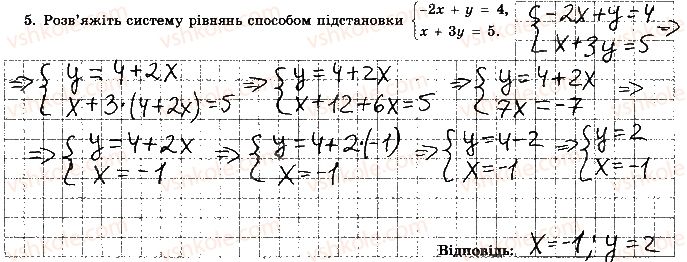 5. Розв'яжіть систему рівнянь способом підстановки { -2x + y = 4, x + 3y = 5.
{ -2x+y=4 x+3y=5
=> { y=4+2x x+3·(4+2x)=5 => { y=4+2x x+12+6x=5 => { y=4+2x 7x=-7 =>
=> { y=4+2x x=-1 => { y=4+2·(-1) x=-1 => { y=4-2 x=-1 => { y=2 x=-1
Відповідь: x=-1; y=2